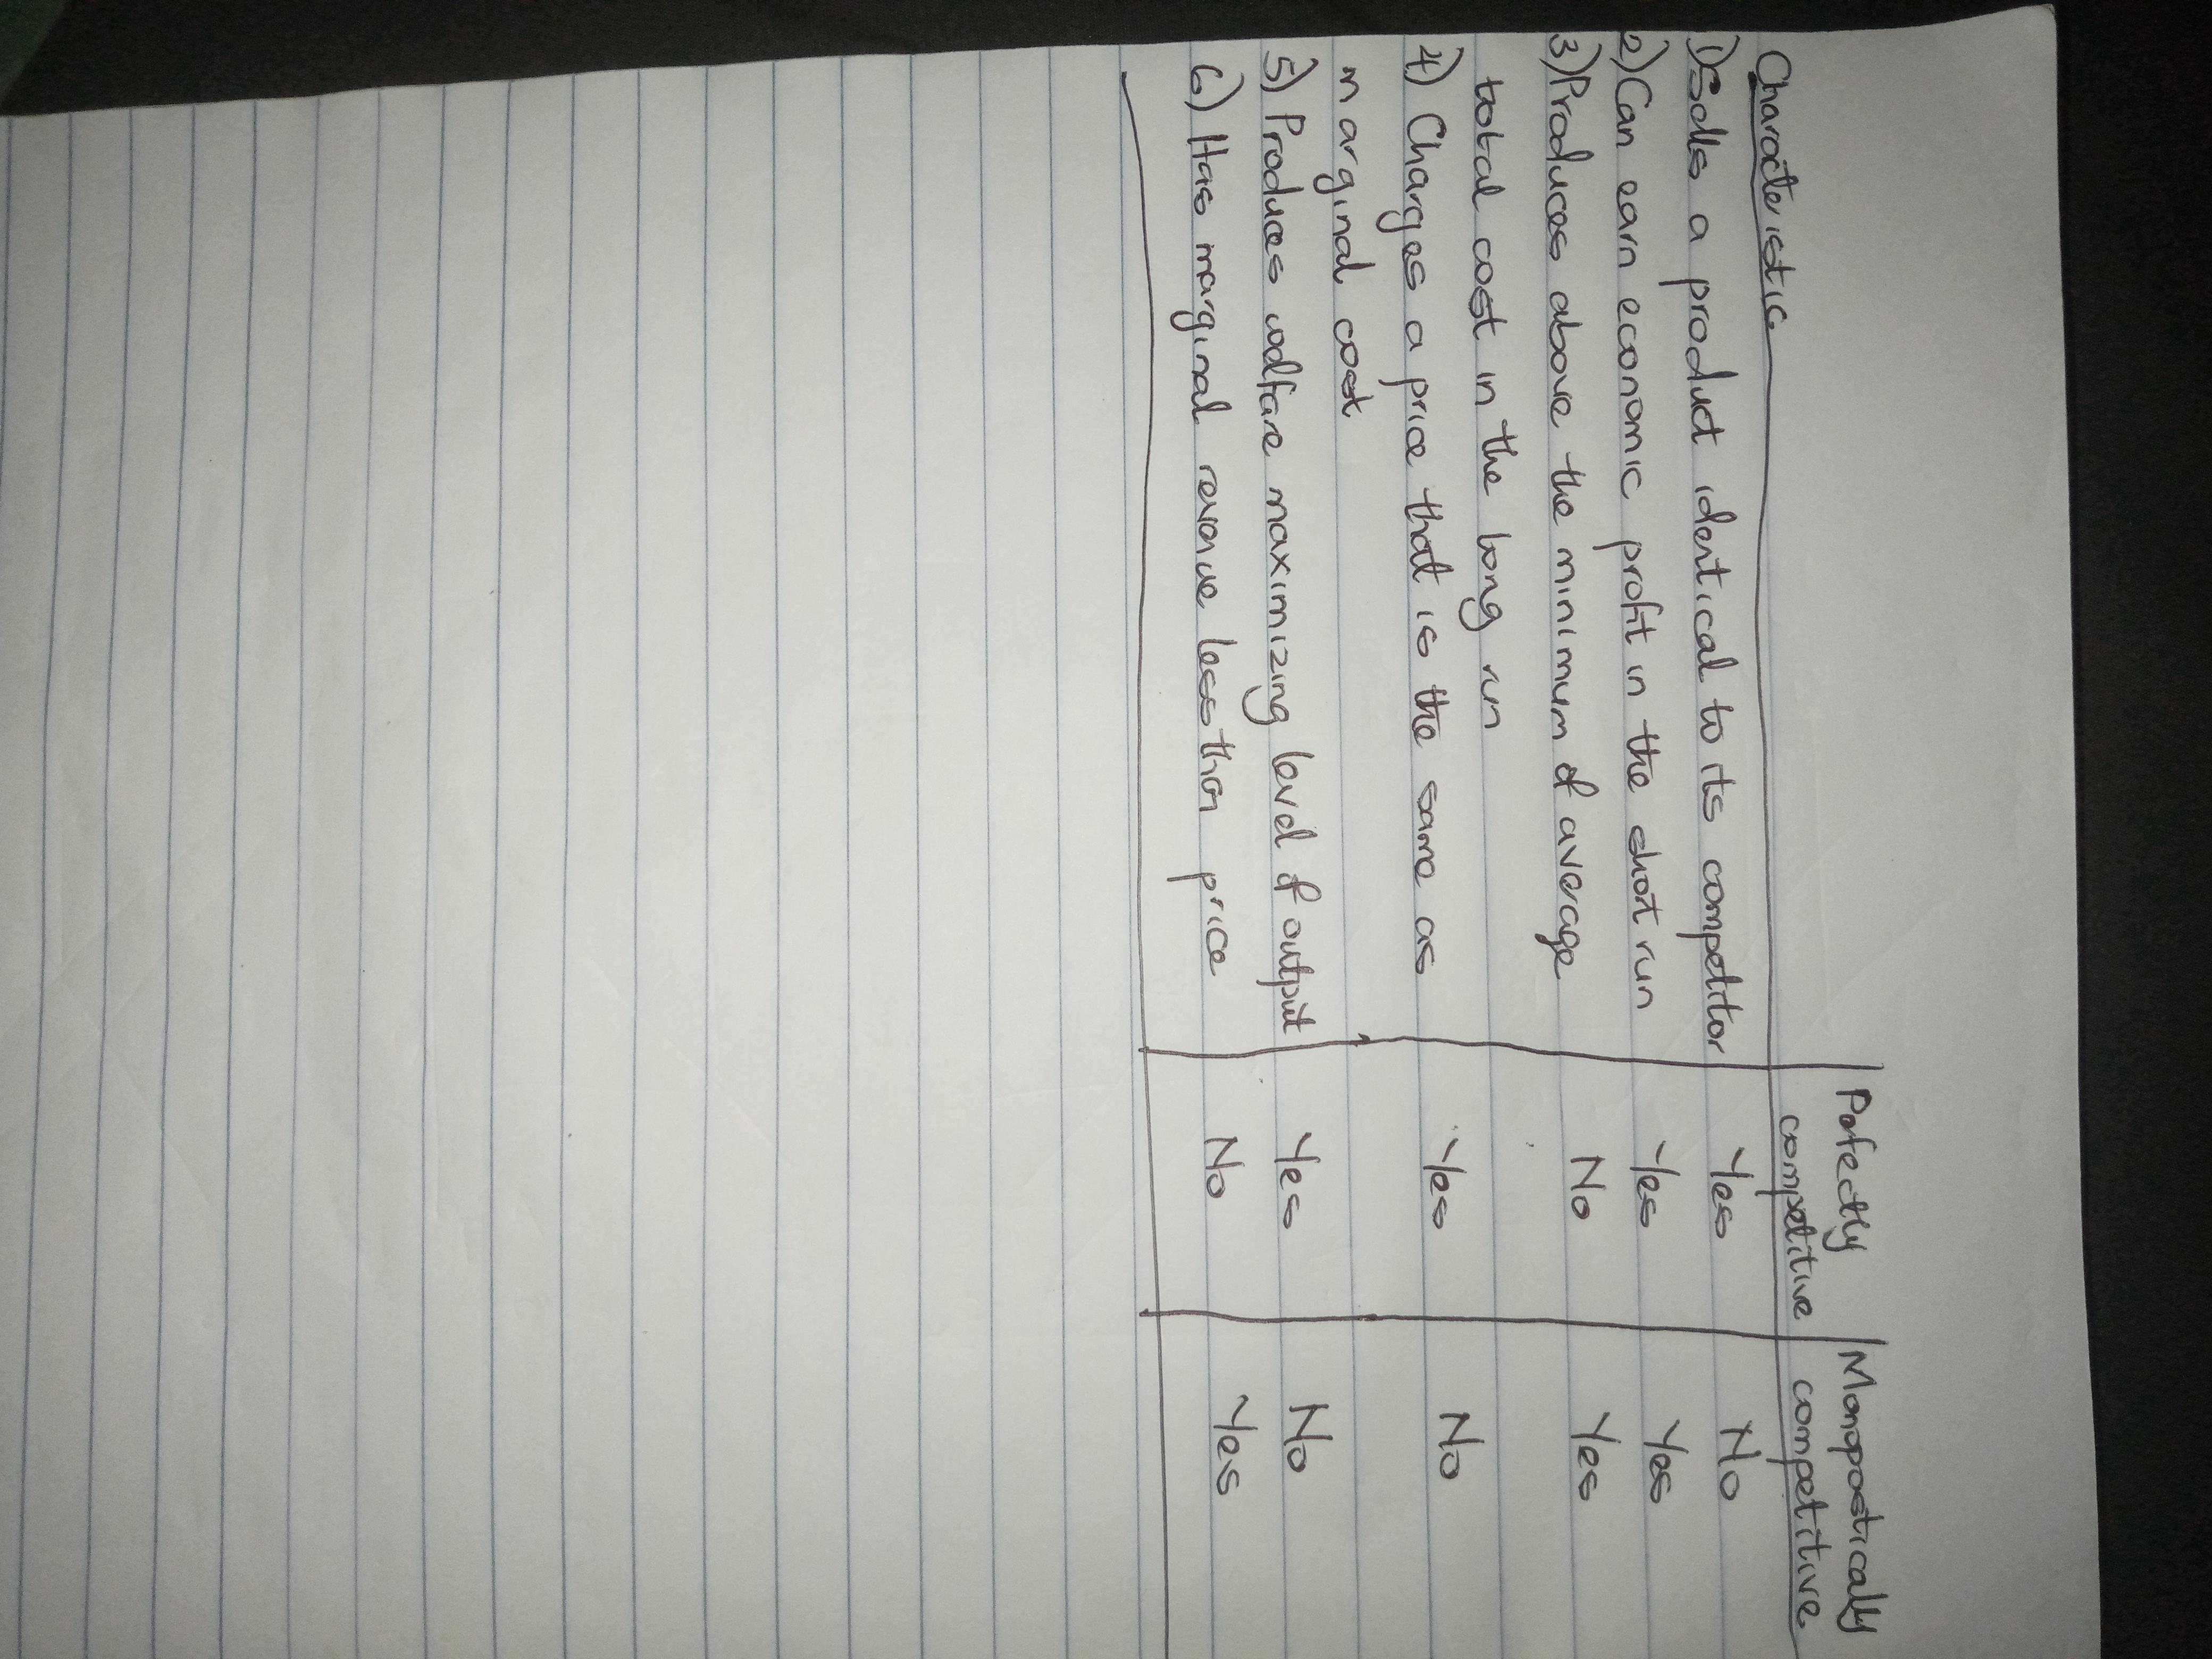 Perfectly | Monopostically
Characteristic competitive competitive
1) Sells a product identical to its competitor Yes No
2) Can earn economic profit in the short run Yes Yes
3) Produces above the minimum of average No Yes
total cost in the long run
4) Charges a price that is the same as Yes No
marginal cost
5) Produces welfare maximizing level of output Yes No
6) Has marginal revenue less than price No Yes